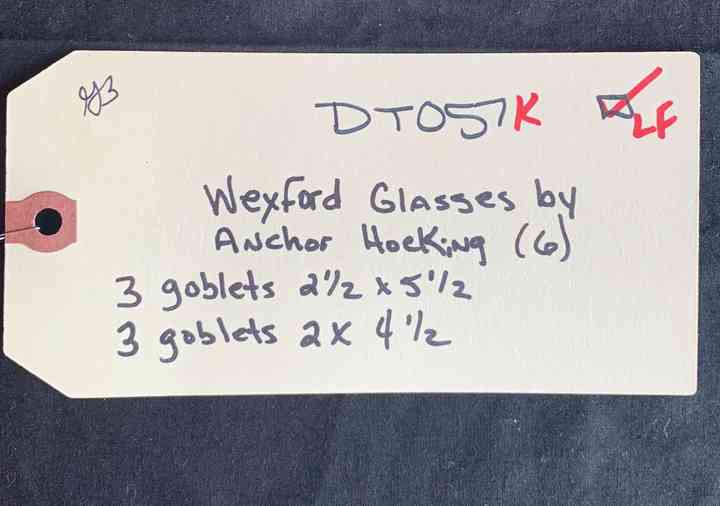 DT057K
LF
Wexford Glasses by
Anchor Hocking (6)
3 goblets 2 1/2 x 5 1/2
3 goblets 2 x 4 1/2